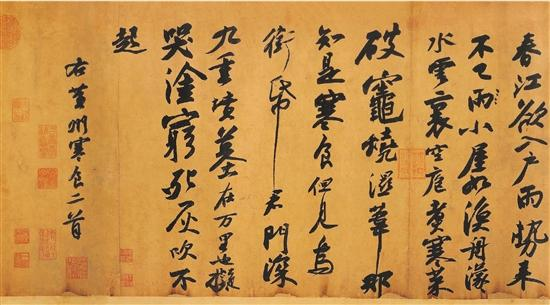 春江欲入戶雨勢來
不已雨小屋如漁舟濛々
水雲裏空庖煮寒菜
破竈燒濕葦那
知是寒食但見烏
銜帋君門深
九重墳墓在万里也擬
哭塗窮死灰吹不
起
右黃州寒食二首